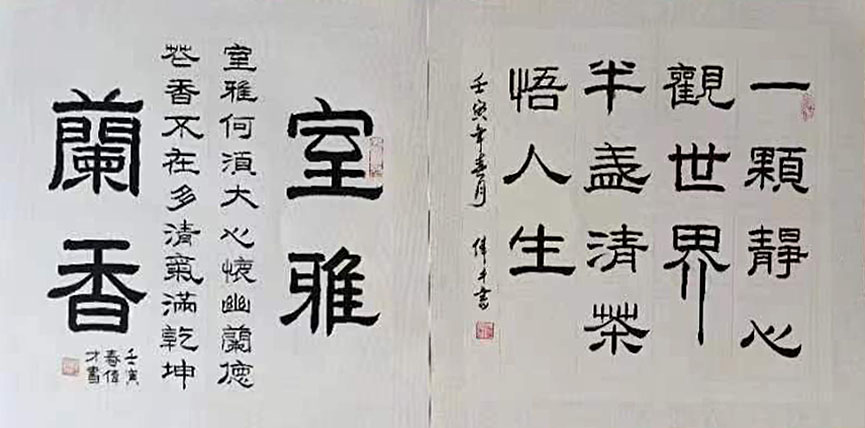 一顆靜心
觀世界
半盞清茶
悟人生
壬寅年春月 偉才書
室雅
室雅何須大心懷幽蘭德
花香不在多清氣滿乾坤
蘭香
壬寅
春偉
才書